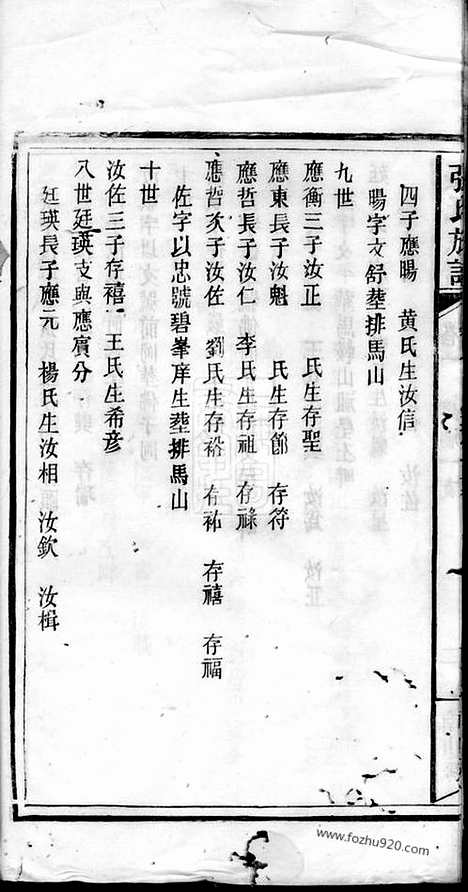 張氏族譜
四子應暘 黄氏生汝信
暘字文舒葬排馬山
九世
應衡三子汝正 氏生存聖
應東長子汝魁 氏生存節 存符
應哲長子汝仁 李氏生存祖 存祿
應哲次子汝佐 劉氏生存裕 存祐 存禧 存福
佐字以忠號碧峯庠生葬排馬山
十世
汝佐三子存禧 王氏生希彦
八世廷瑛支與應賓分
廷瑛長子應元 楊氏生汝相 汝欽 汝楫
www.fozhu920.com